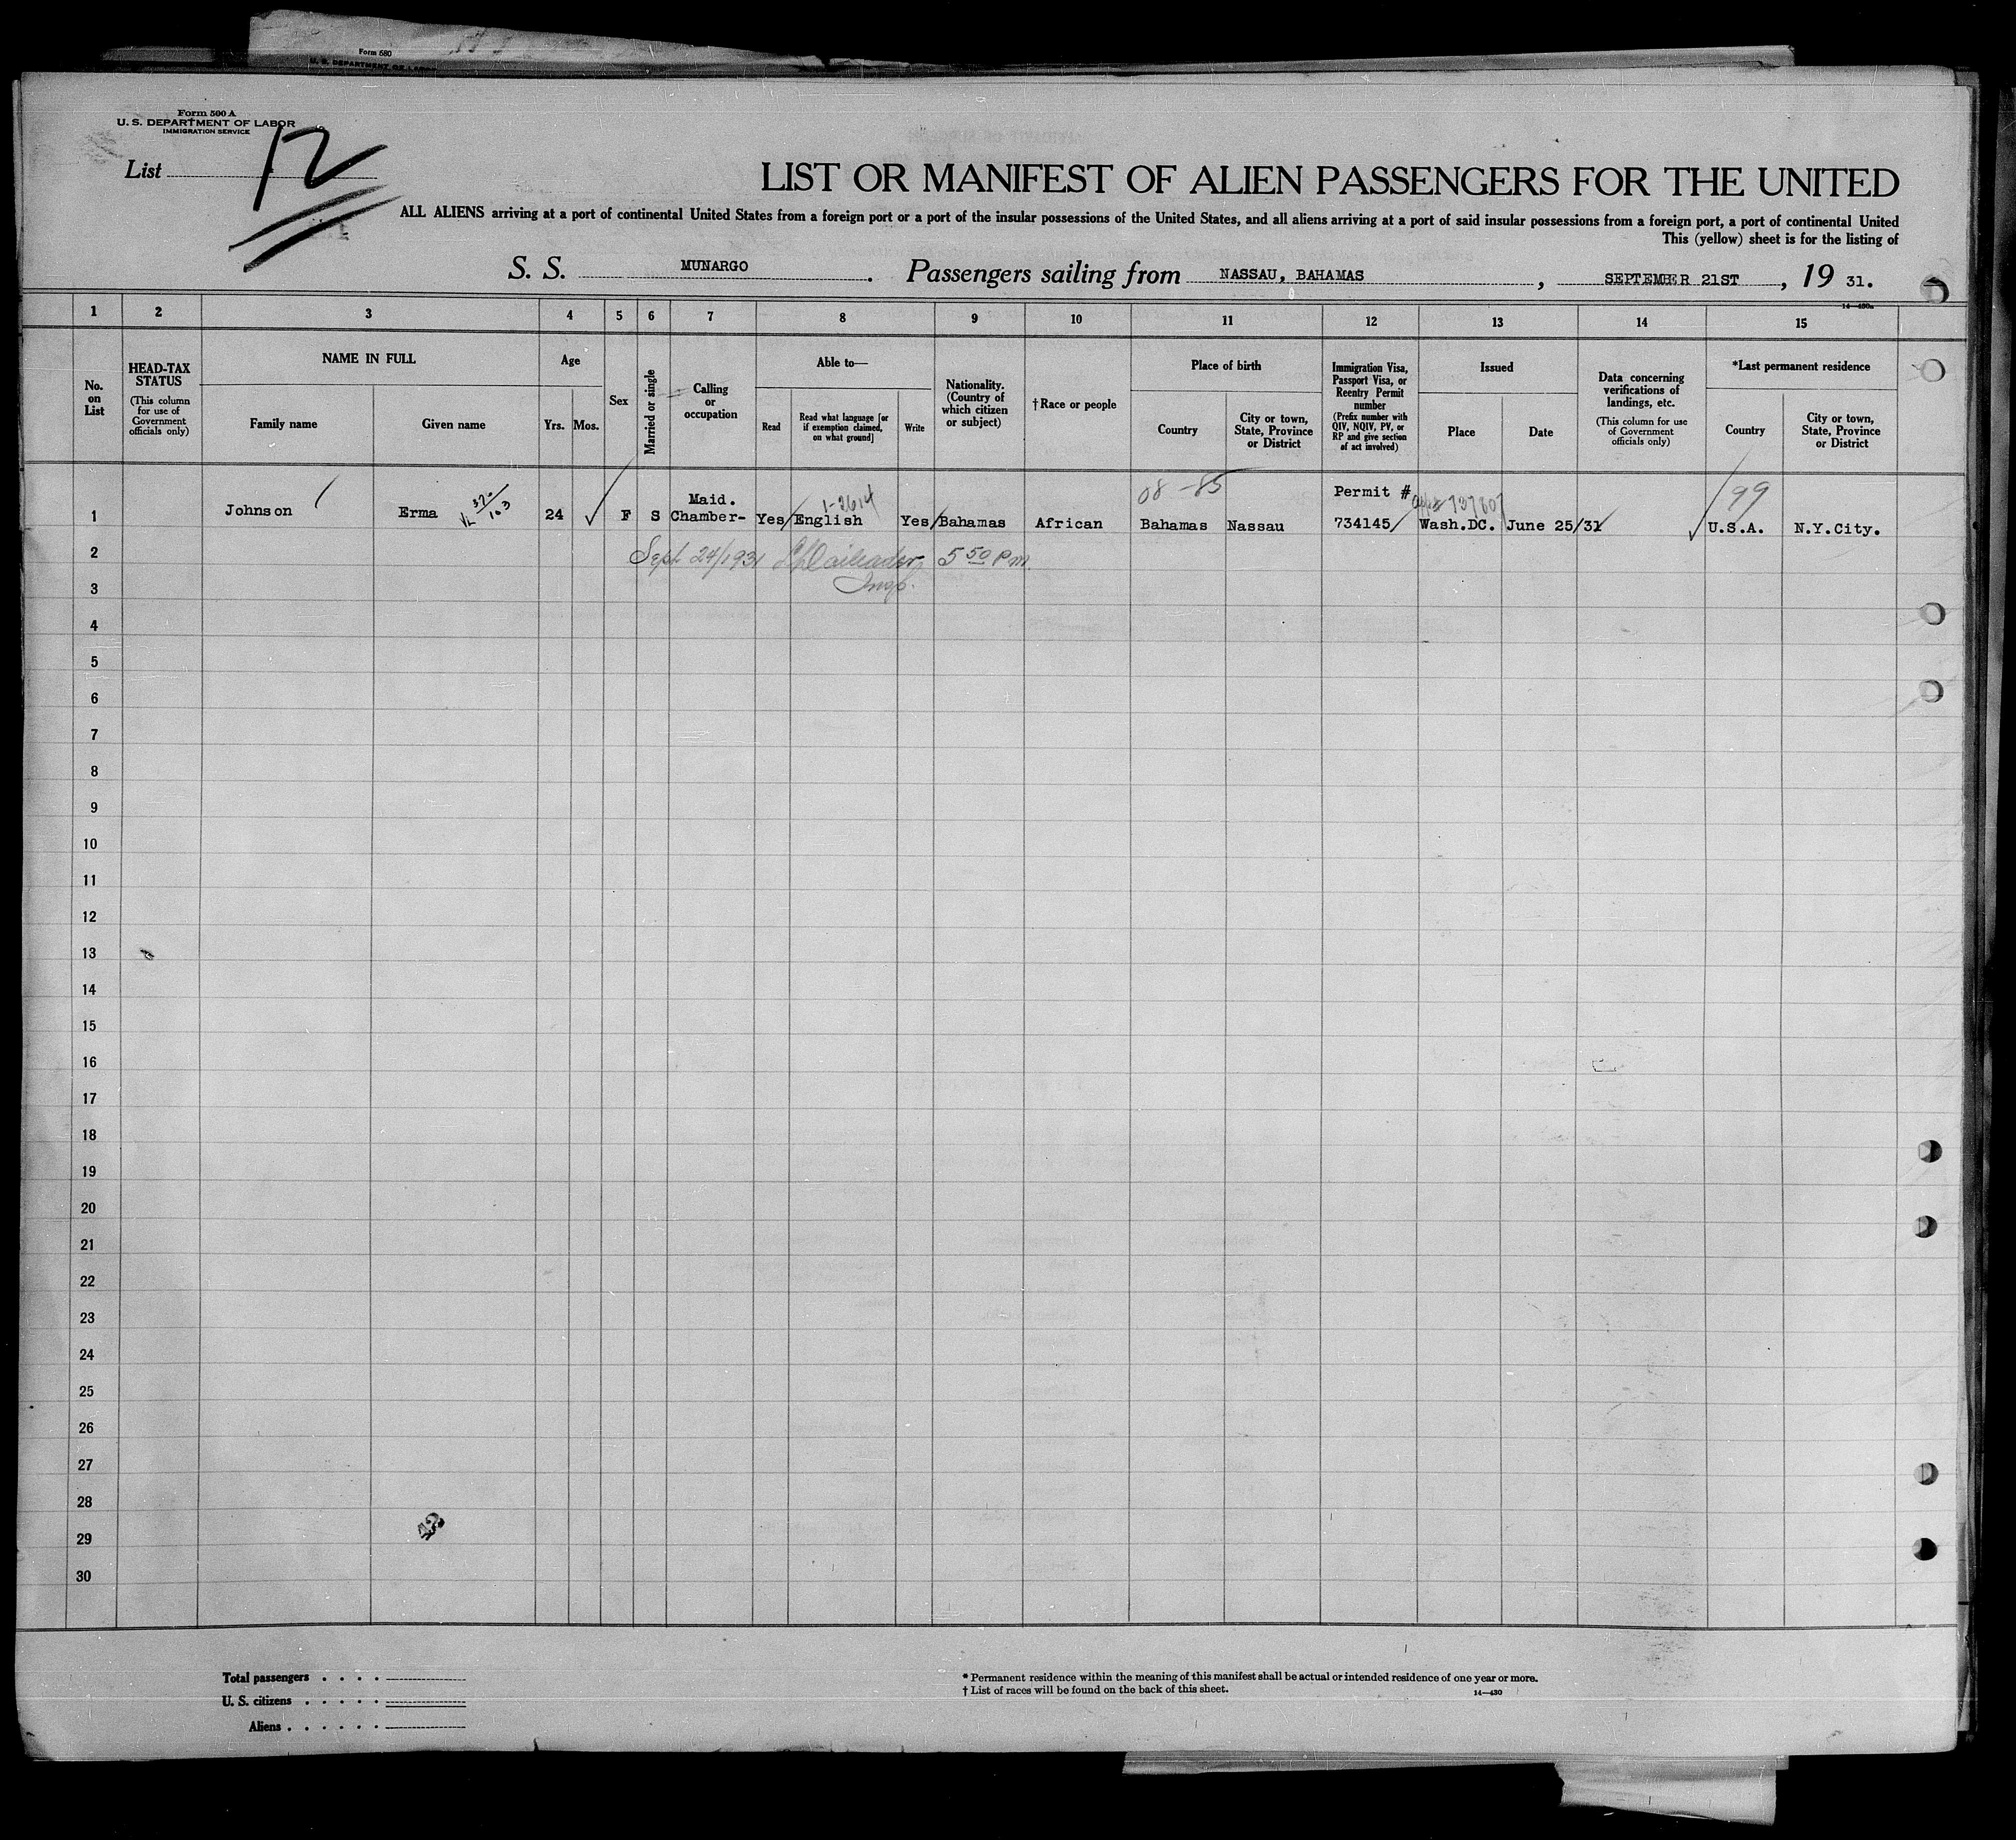 Form 580
U. S. DEPARTMENT OF LABOR
Form 500 A
U. S. DEPARTMENT OF LABOR
IMMIGRATION SERVICE
List 12
LIST OR MANIFEST OF ALIEN PASSENGERS FOR THE UNITED
ALL ALIENS arriving at a port of continental United States from a foreign port or a port of the insular possessions of the United States, and all aliens arriving at a port of said insular possessions from a foreign port, a port of continental United
This (yellow) sheet is for the listing of
S. S. MUNARGO. Passengers sailing from NASSAU, BAHAMAS, SEPTEMBER 21ST, 19 31.
1 2 3 4 5 6 7 8 9 10 11 12 13 14 15
No. on List
HEAD-TAX STATUS
(This column for use of Government officials only)
NAME IN FULL
Family name
Given name
Age
Yrs. Mos.
Sex
Married or single
Calling or occupation
Able to—
Read
Read what language [or if exemption claimed, on what ground]
Write
Nationality. (Country of which citizen or subject)
†Race or people
Place of birth
Country
City or town, State, Province or District
Immigration Visa, Passport Visa, or Reentry Permit number
(Prefix number with QIV, NQIV, PV, or RP and give section of act involved)
Issued
Place
Date
Data concerning verifications of landings, etc.
(This column for use of Government officials only)
*Last permanent residence
Country
City or town, State, Province or District
08 -85
99
Maid. 1-2614 Permit #
1 Johnson Erma 370/103 24 F S Chamber- Yes English Yes Bahamas African Bahamas Nassau 734145 Wash.DC. June 25/31 U.S.A. N.Y.City.
2 Sept 24/1931 5 50 P.m.
Insp.
3
4
5
6
7
8
9
10
11
12
13
14
15
16
17
18
19
20
21
22
23
24
25
26
27
28
29
30
Total passengers . . . .
U. S. citizens . . . . .
Aliens . . . . . .
* Permanent residence within the meaning of this manifest shall be actual or intended residence of one year or more.
† List of races will be found on the back of this sheet. 14—430